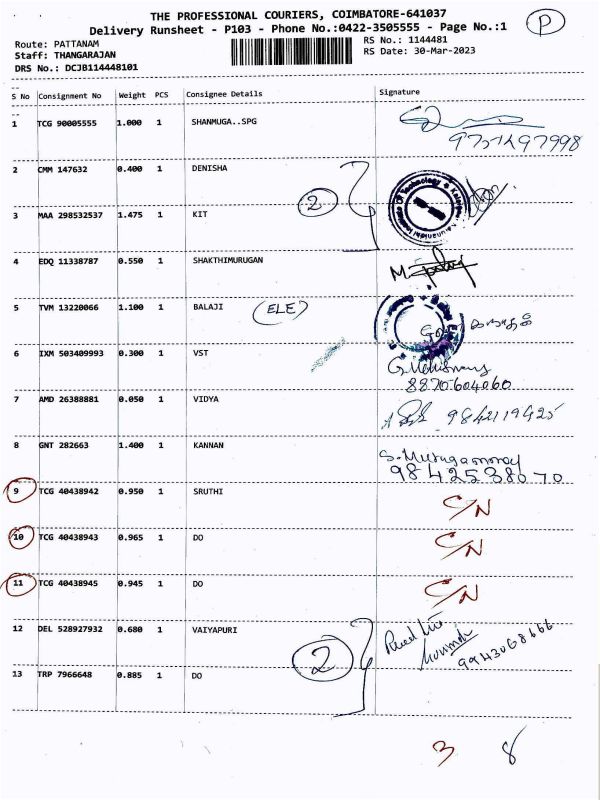 THE PROFESSIONAL COURIERS, COIMBATORE-641037
Delivery Runsheet - P103 - Phone No.:0422-3505555 - Page No.:1
P
Route: PATTANAM
RS No.: 1144481
Staff: THANGARAJAN
RS Date: 30-Mar-2023
DRS No.: DCJB114448101
S No Consignment No Weight PCS Consignee Details Signature
1 TCG 90005555 1.000 1 SHANMUGA..SPG
2 CMM 147632 0.400 1 DENISHA
2
3 MAA 298532537 1.475 1 KIT
4 EDQ 11338787 0.550 1 SHAKTHIMURUGAN
5 TVM 13220066 1.100 1 BALAJI (ELE)
6 IXM 503409993 0.300 1 VST
8870604060
7 AMD 26388881 0.050 1 VIDYA 9842119425
8 GNT 282663 1.400 1 KANNAN
9842538070
9 TCG 40438942 0.950 1 SRUTHI C/N
10 TCG 40438943 0.965 1 DO C/N
11 TCG 40438945 0.945 1 DO C/N
12 DEL 528927932 0.680 1 VAIYAPURI
9943068666
2
13 TRP 7966648 0.885 1 DO
3 8